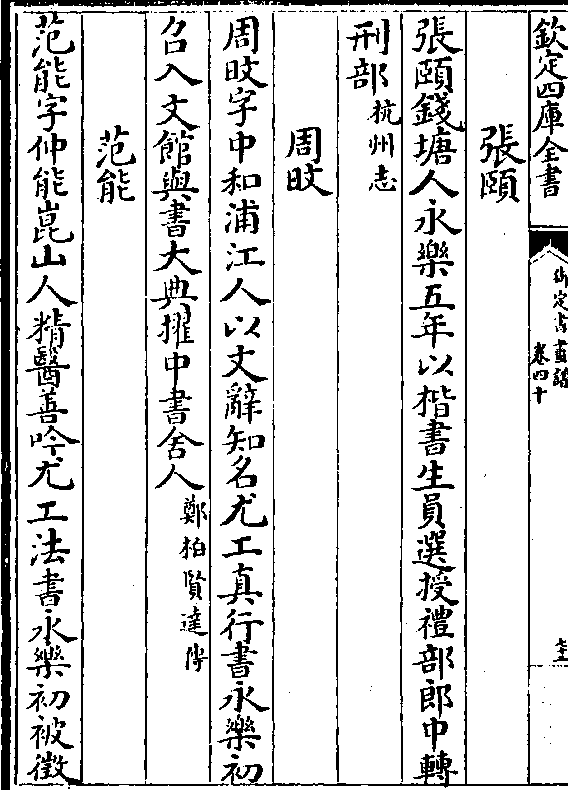 欽定四庫全書
御定書畫譜
卷四十
張頤
張頤錢塘人永樂五年以楷書生員選授禮部郎中轉
刑部杭州志
周旼
周旼字中和浦江人以文辭知名尤工真行書永樂初
召入文館與書大典擢中書舍人鄭柏賢達傳
范能
范能字仲能崑山人精醫善吟尤工法書永樂初被徵